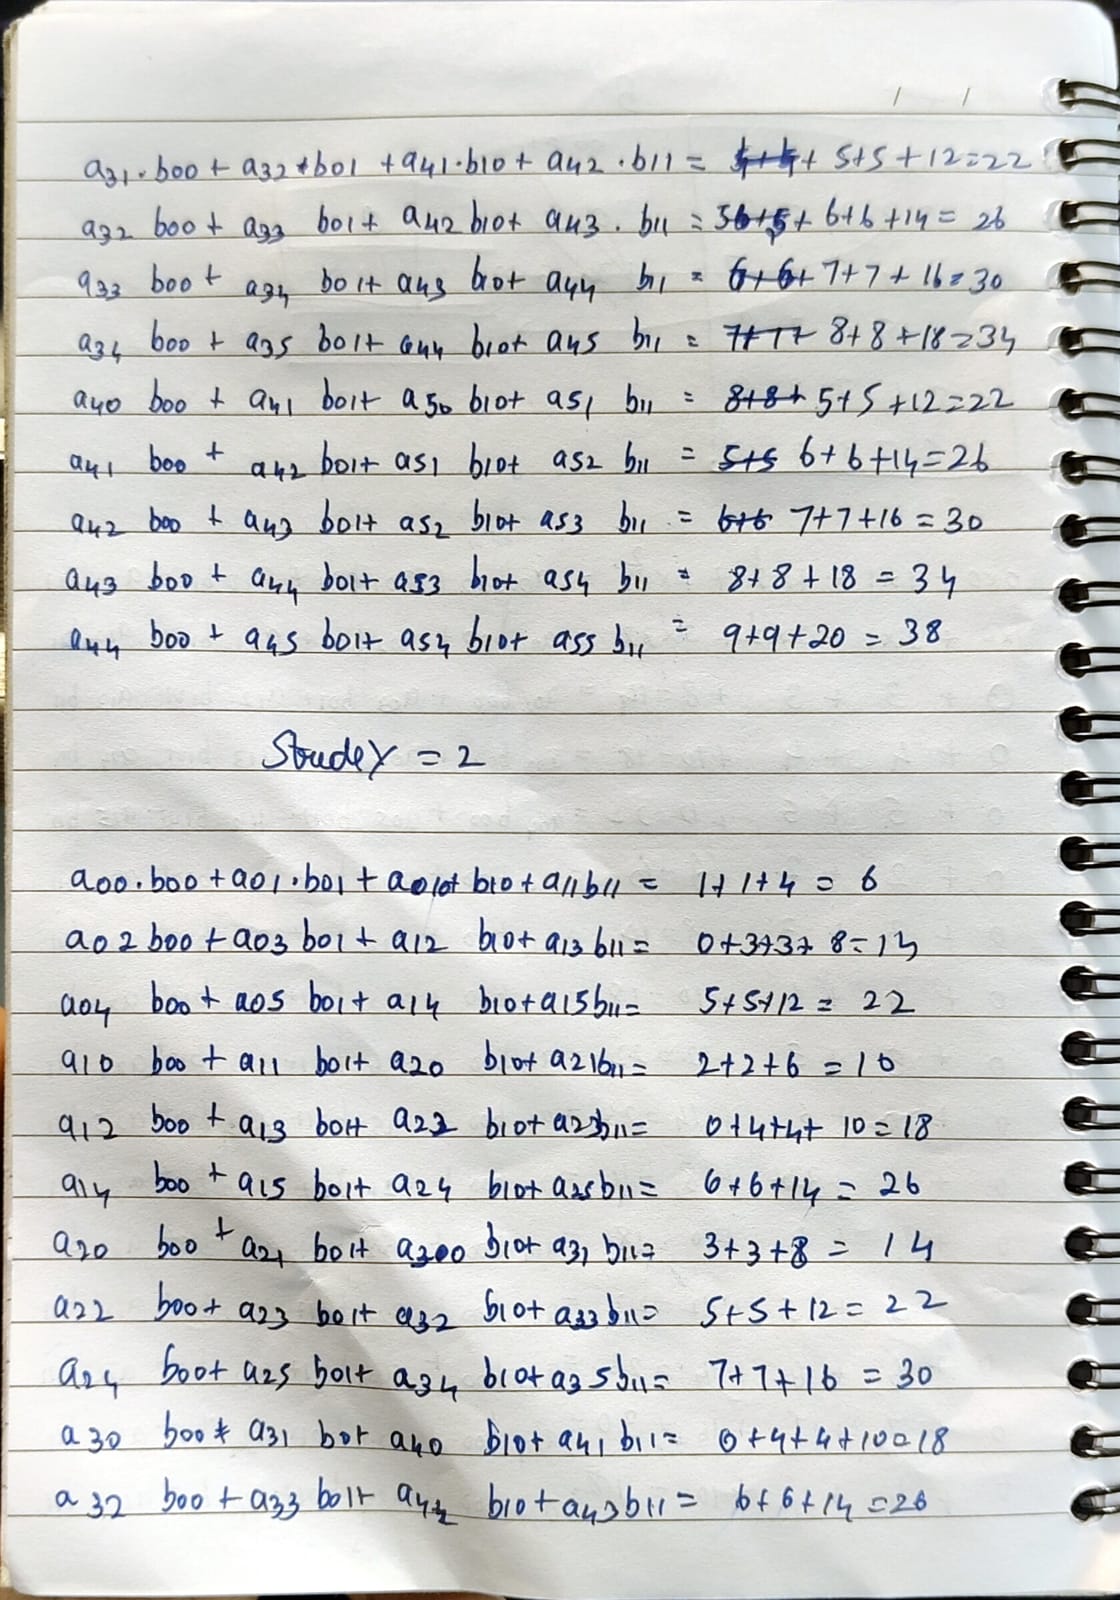 a31.b00 + a32*b01 + a41.b10 + a42.b11 = 4+4+ 5+5+12=22
a32 b00 + a33 b01+ a42 b10+ a43.b11 = 56+5+ 6+6+14= 26
a33 b00 + a34 b01+ a43 b10+ a44 b11 = 6+6+ 7+7+16=30
a34 b00 + a35 b01+ a44 b10+ a45 b11 = 7+7+ 8+8+18=34
a40 b00 + a41 b01+ a50 b10+ a51 b11 = 8+8+ 5+5+12=22
a41 b00 + a42 b01+ a51 b10+ a52 b11 = 5+5 6+6+14=26
a42 b00 + a43 b01+ a52 b10+ a53 b11 = 6+6 7+7+16=30
a43 b00 + a44 b01+ a53 b10+ a54 b11 = 8+8+18 = 34
a44 b00 + a45 b01+ a54 b10+ a55 b11 = 9+9+20 = 38
= 2
a00.b00+a01.b01+ b10+a11b11 = 1+1+4 = 6
a02b00+a03b01+ a12 b10+a13b11= 0+3+3+8=14
a04 b00+ a05 b01+ a14 b10+a15b11= 5+5+12= 22
a10 b00 + a11 b01+ a20 b10+ a21b11= 2+2+6 = 10
a12 b00 + a13 b01+ a22 b10+ a23b11= 0+4+4+ 10=18
a14 b00 + a15 b01+ a24 b10+ a25b11= 6+6+14= 26
a20 b00 + a21 b01+ a300 b10+ a31 b11= 3+3+8 = 14
a22 b00+ a23 b01+ a32 b10+ a33b11= 5+5+12= 22
a24 b00+ a25 b01+ a34 b10+a35b11= 7+7+16 = 30
a30 b00+ a31 b0+ a40 b10+ a41 b11= 0+4+4+10=18
a32 b00 + a33 b01+ a42 b10+a43b11= 6+6+14=26